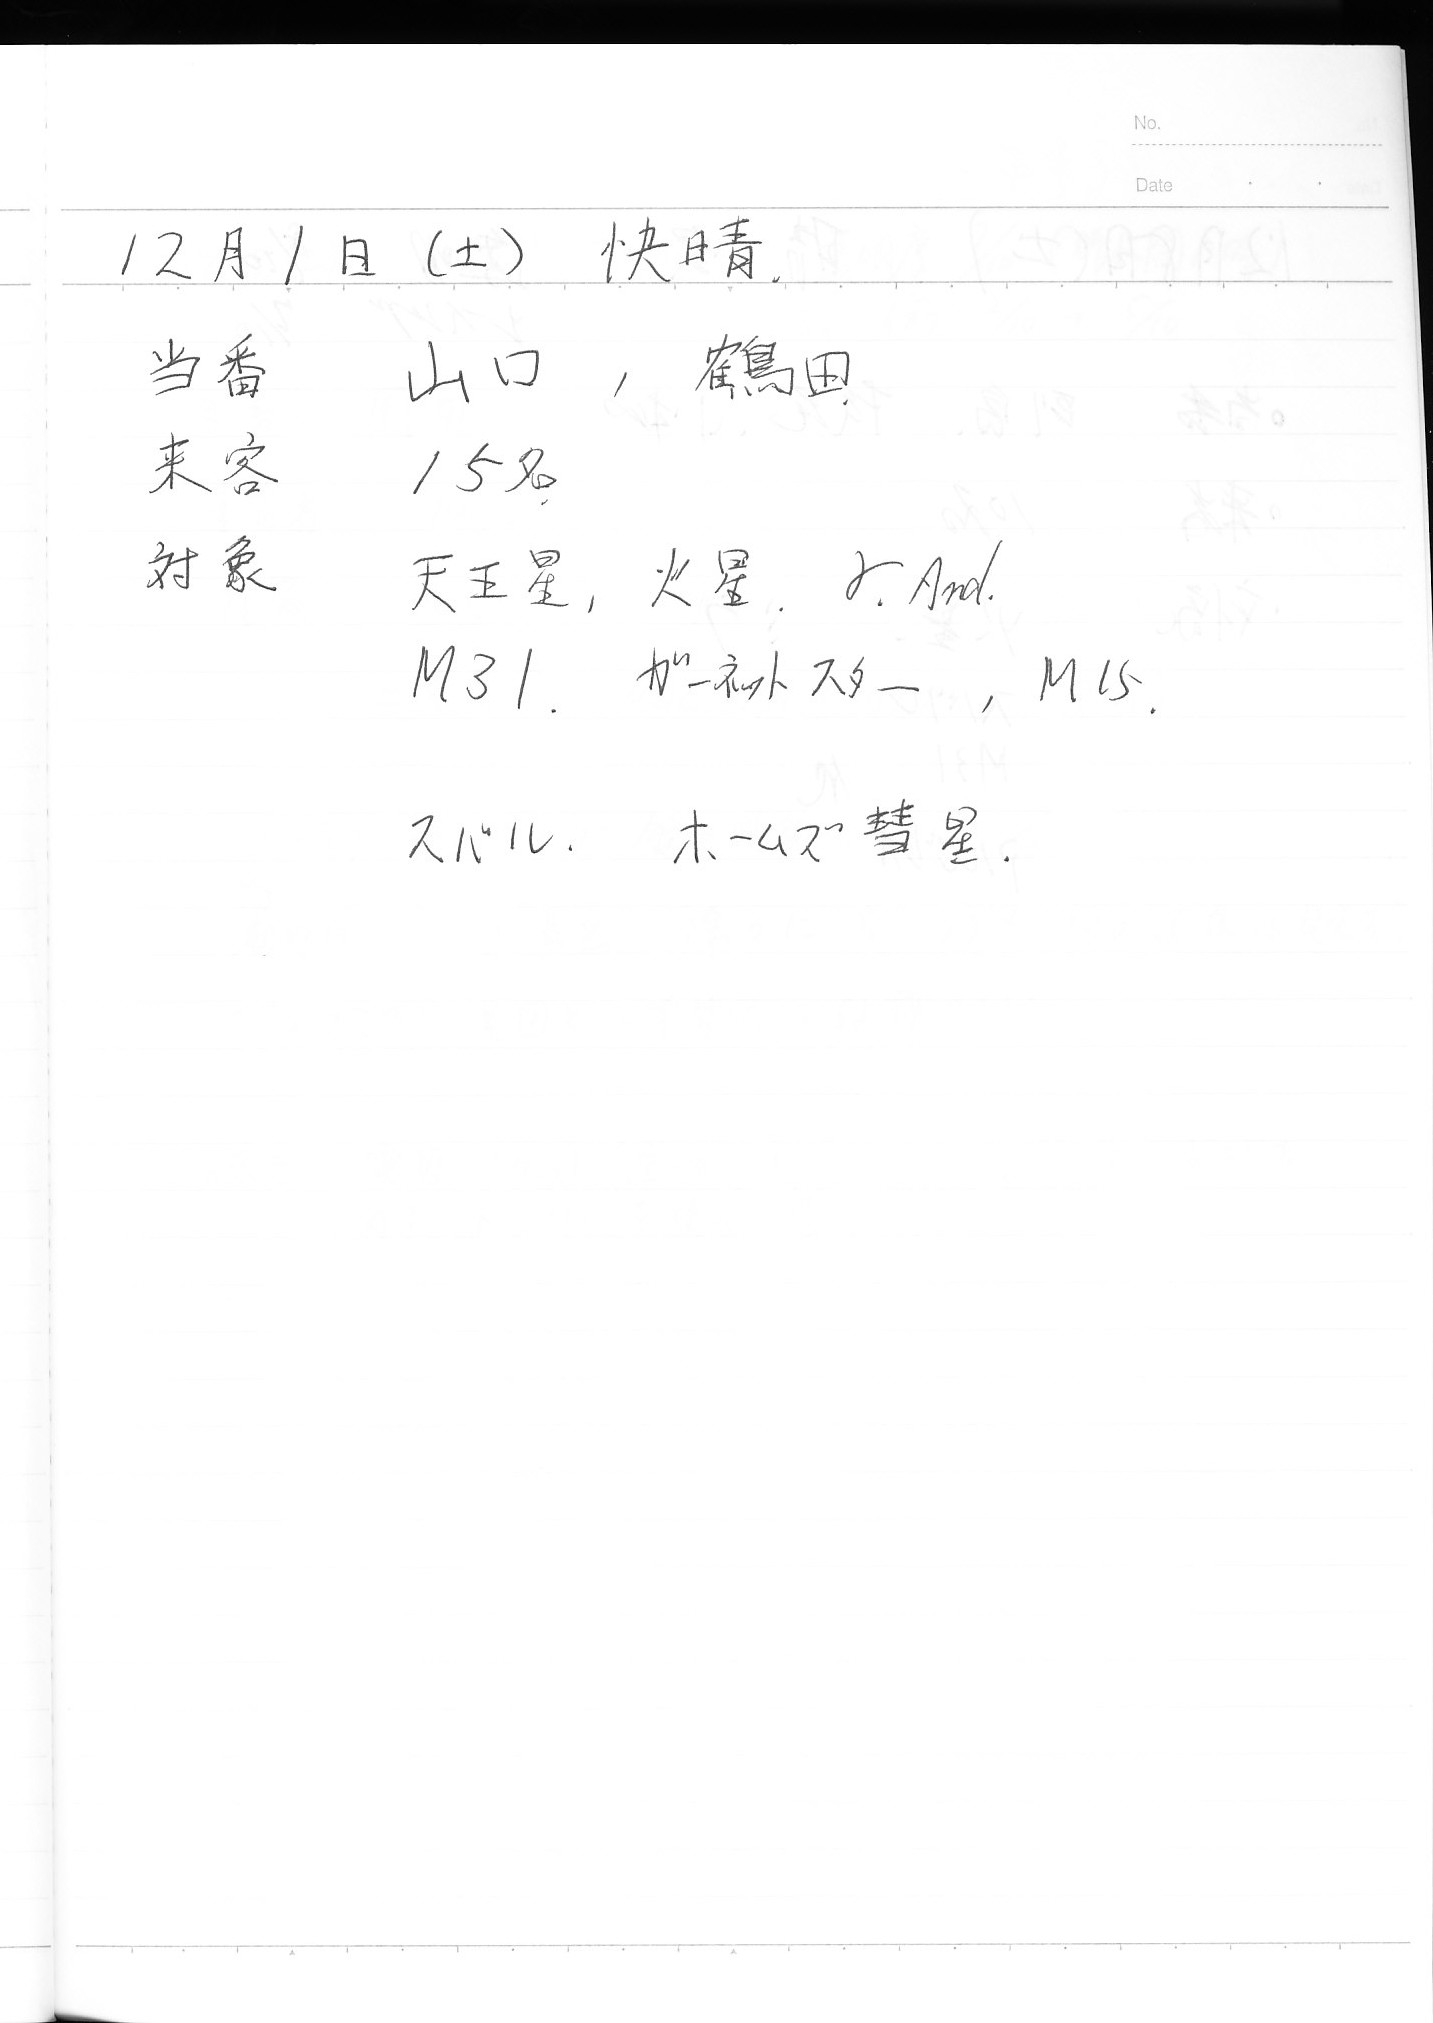 No.
Date
12月1日(土) 快晴.
当番 山口, 鶴田
来客 15名
対象 天王星, 火星. γ. And.
M31. ガーネットスター, M15.
スバル. ホームズ彗星.